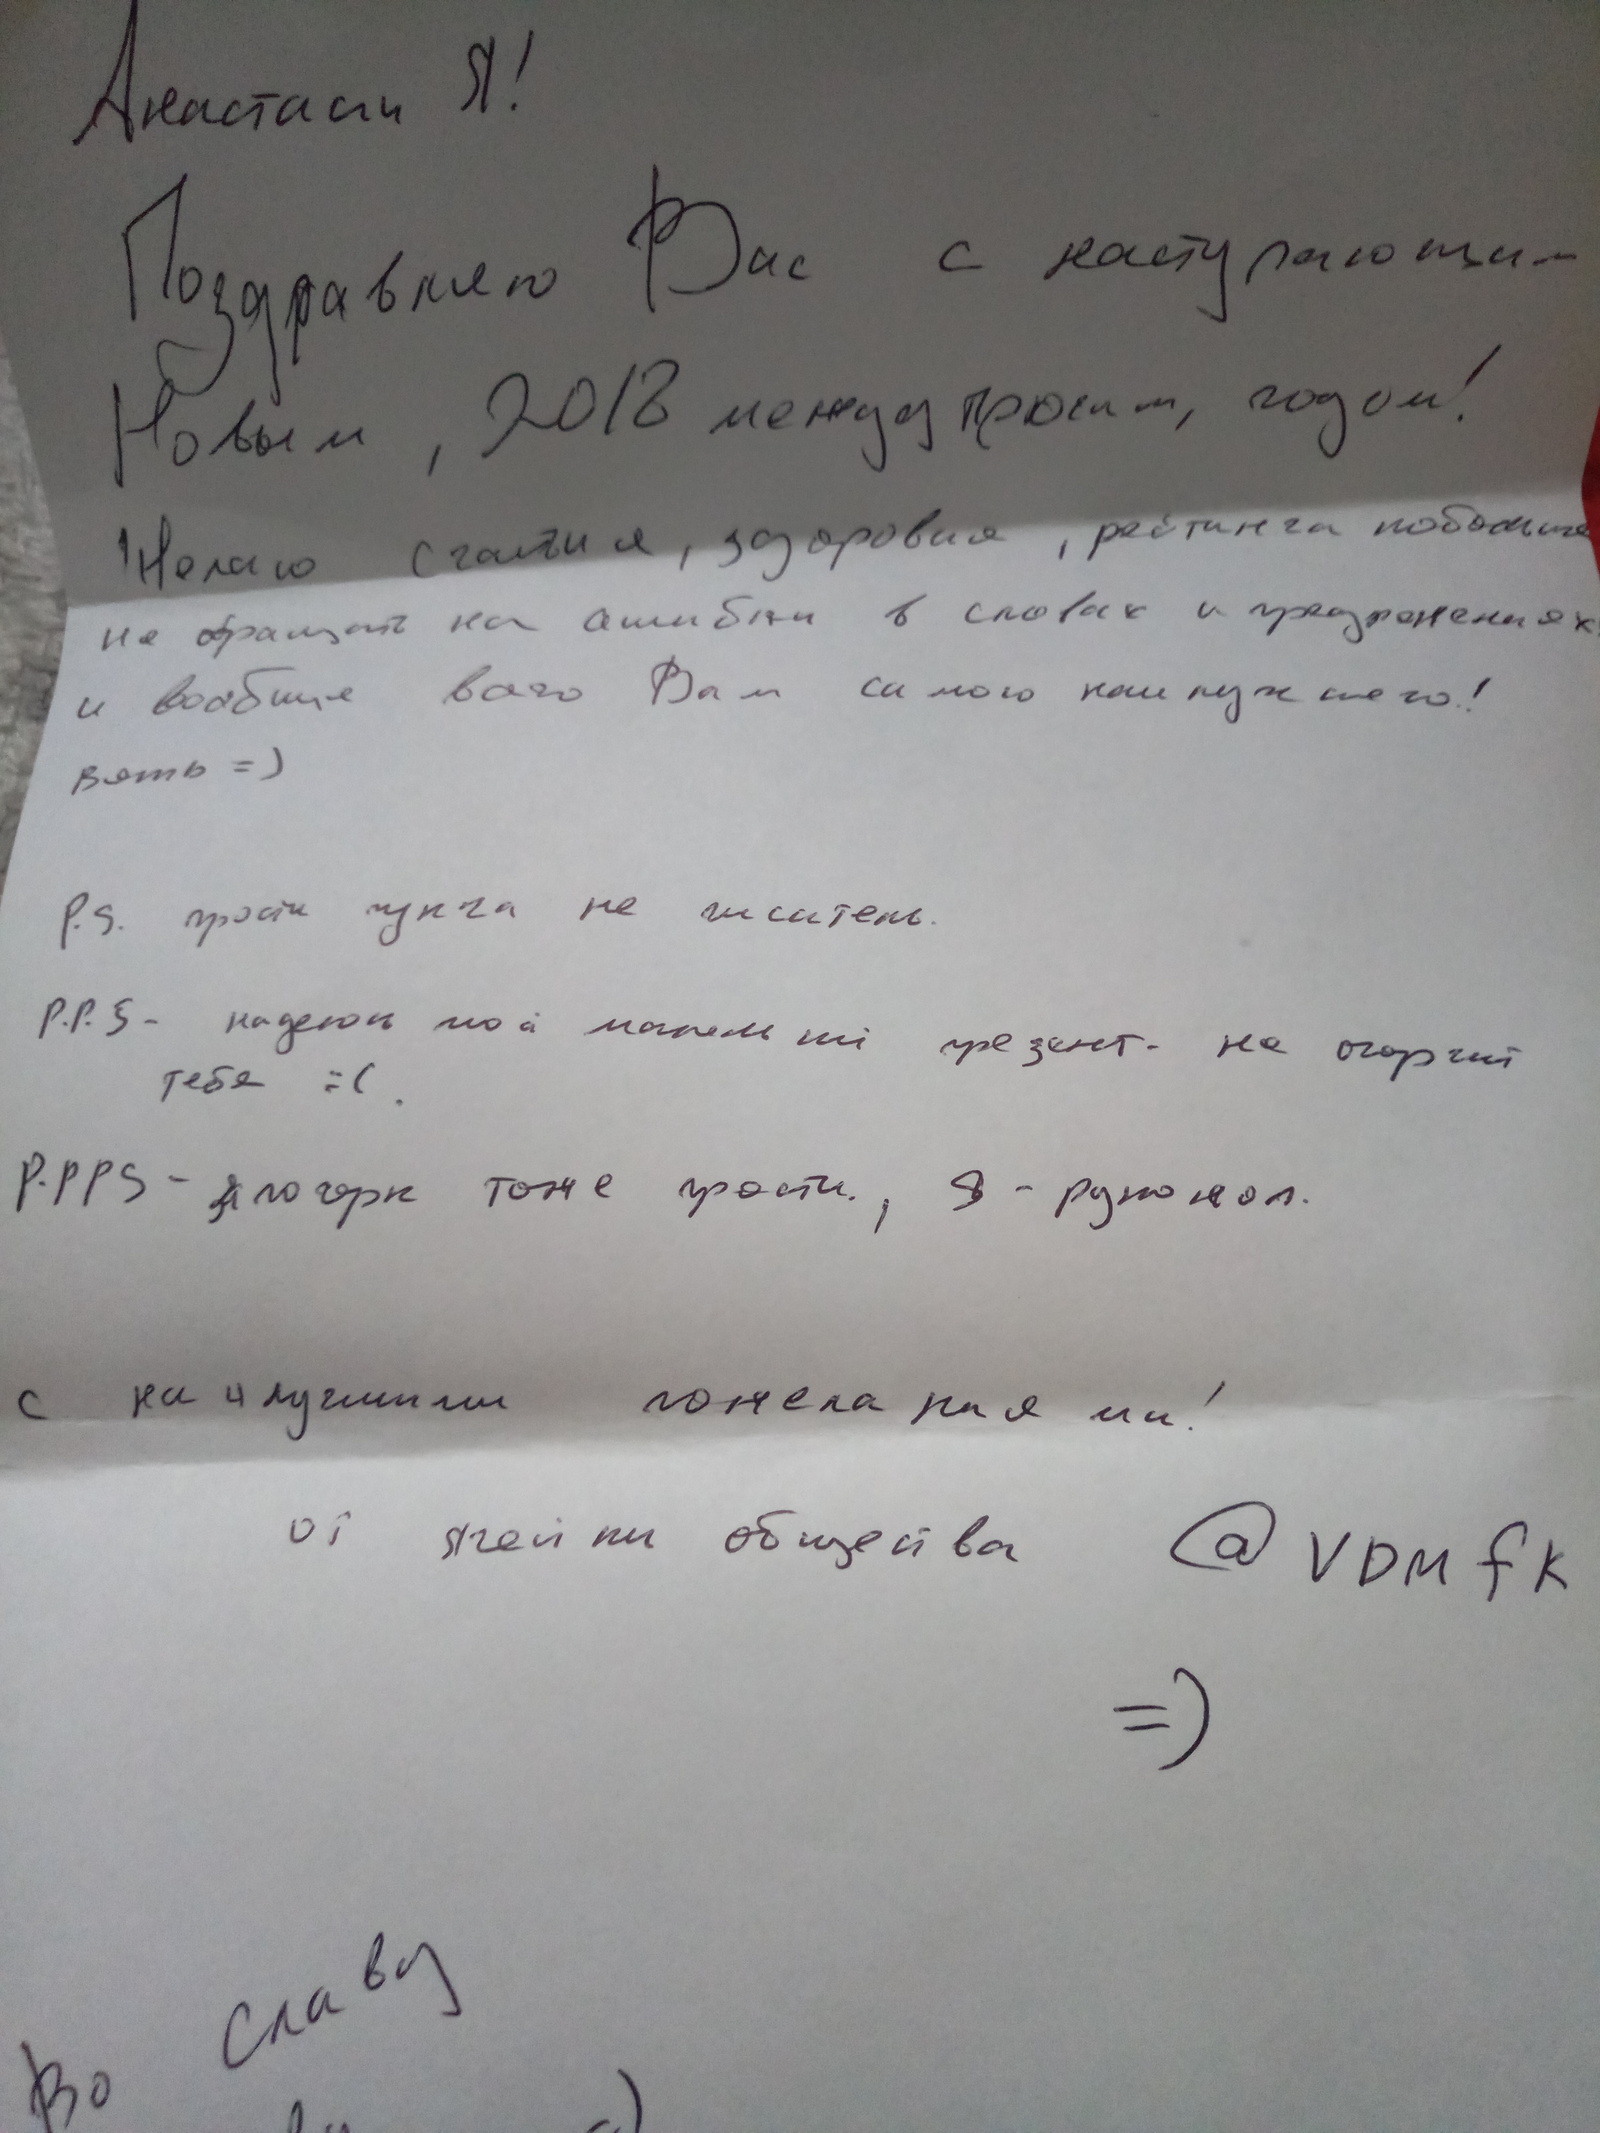 Анастаси Я!
Поздравляю Вас с наступающим
Новым, 2018 между прочим, годом!
Желаю счастия, здоровия, рейтинга побольше
не обращать на ашибки в словах и предложениях
и вообще всего Вам самого наилучшего!
P.S. прости пункта не писатель.
P.P.S- надеюсь мой маленький презент- не огорчит
тебя =(.
P.PPS- почерк тоже прости., Я - рукожоп.
с наилучшими пожеланиями!
от ячейки общества @VDMfK
=)
Во славу